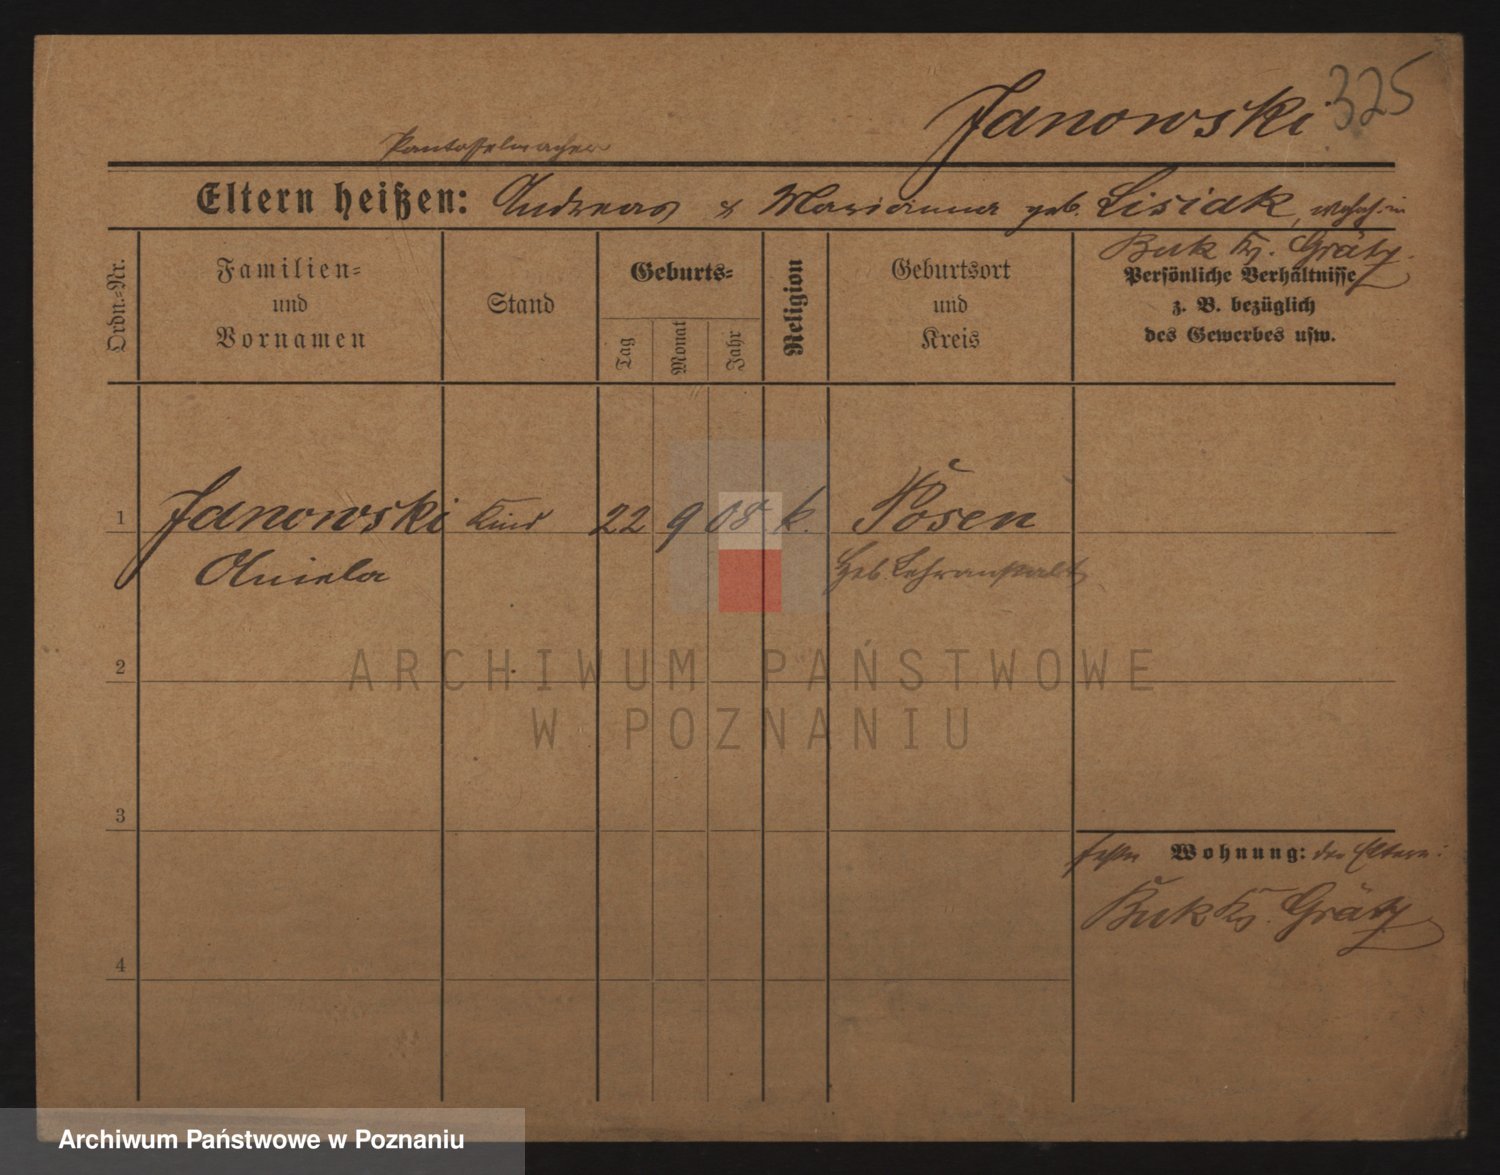 Janowski 325
Pantoffelmacher
Eltern heißen: Andreas & Marianna geb. Lisiak, wohnh. in
Buk Kr. Grätz.
Ordn.-Nr.
Familien-
und
Vornamen
Stand
Geburts-
Tag
Monat
Jahr
Religion
Geburtsort
und
Kreis
Persönliche Verhältnisse
z. B. bezüglich
des Gewerbes usw.
1 Janowski Kind 22 9 08 k. Posen
Aniela Heb. Lehranstalt
2
ARCHIWUM PAŃSTWOWE
W POZNANIU
3
Wohnung: der Eltern:
Buk Kr. Grätz
4
Archiwum Państwowe w Poznaniu